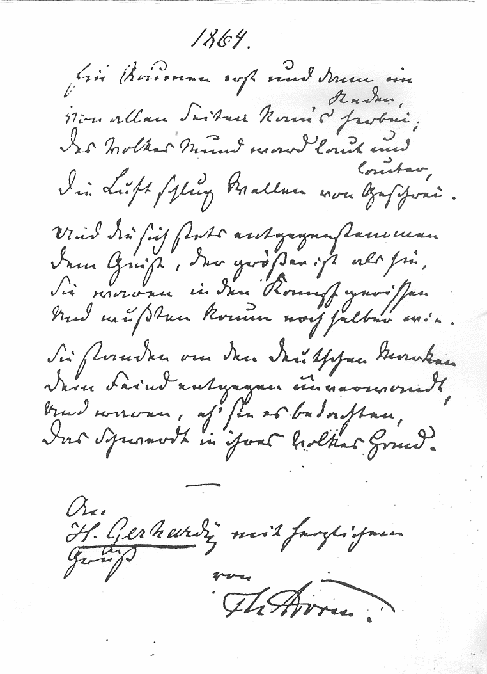 1864.
Ein Raunen erst und dann ein
Reden,
Von allen Seiten kam's herbei;
Des Volkes Mund ward laut und
lauter,
Die Luft schlug Wellen von Geschrei.
Und die sich stets entgegenstemmen
Dem Geist, der größer ist als sie,
Sie waren in den Kampf gerissen
Und wußten kaum noch selber wie.
Sie standen an den deutschen Marken
Dem Feind entgegen unverwandt,
Und waren, eh' sie es bedachten,
Das Schwerdt in ihres Volkes Hand.
An
H. Gerhardy mit herzlichem
Gruß
von
Th Storm.